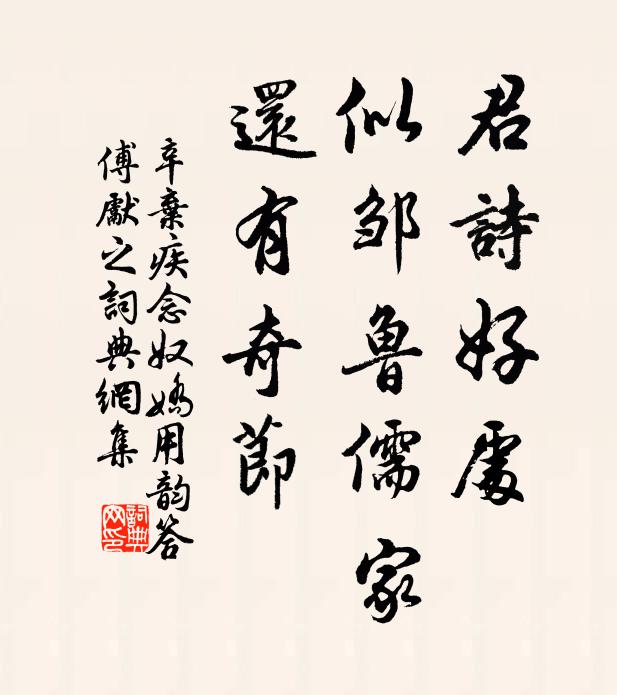 君詩好處
似邹魯儒家
還有奇節
辛棄疾念奴嬌用韵答
傅獻之詞典網集
詞典
网印